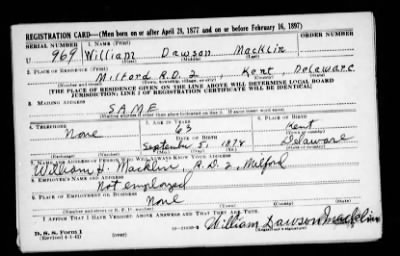 REGISTRATION CARD—(Men born on or after April 28, 1877 and on or before February 16, 1897)
SERIAL NUMBER 1. NAME (Print) ORDER NUMBER
U 969 William Dawson Macklin
(First) (Middle) (Last)
2. PLACE OF RESIDENCE (Print)
Milford R.D. 2, Kent, Delaware
(Number and street) (Town, township, village, or city) (County) (State)
[THE PLACE OF RESIDENCE GIVEN ON THE LINE ABOVE WILL DETERMINE LOCAL BOARD
JURISDICTION; LINE 2 OF REGISTRATION CERTIFICATE WILL BE IDENTICAL]
3. MAILING ADDRESS
SAME
[Mailing address if other than place indicated on line 2. If same insert word same]
4. TELEPHONE 5. AGE IN YEARS 6. PLACE OF BIRTH
None 63 Kent
DATE OF BIRTH (Town or county)
September 5, 1878 Delaware
(Exchange) (Number) (Mo.) (Day) (Yr.) (State or country)
7. NAME AND ADDRESS OF PERSON WHO WILL ALWAYS KNOW YOUR ADDRESS
William H. Macklin R.D. 2, Milford
8. EMPLOYER'S NAME AND ADDRESS
Not employed
9. PLACE OF EMPLOYMENT OR BUSINESS
None
(Number and street or R. F. D. number) (Town) (County) (State)
I AFFIRM THAT I HAVE VERIFIED ABOVE ANSWERS AND THAT THEY ARE TRUE.
D. S. S. Form 1
(Revised 4-1-42) (over)
William Dawson Macklin